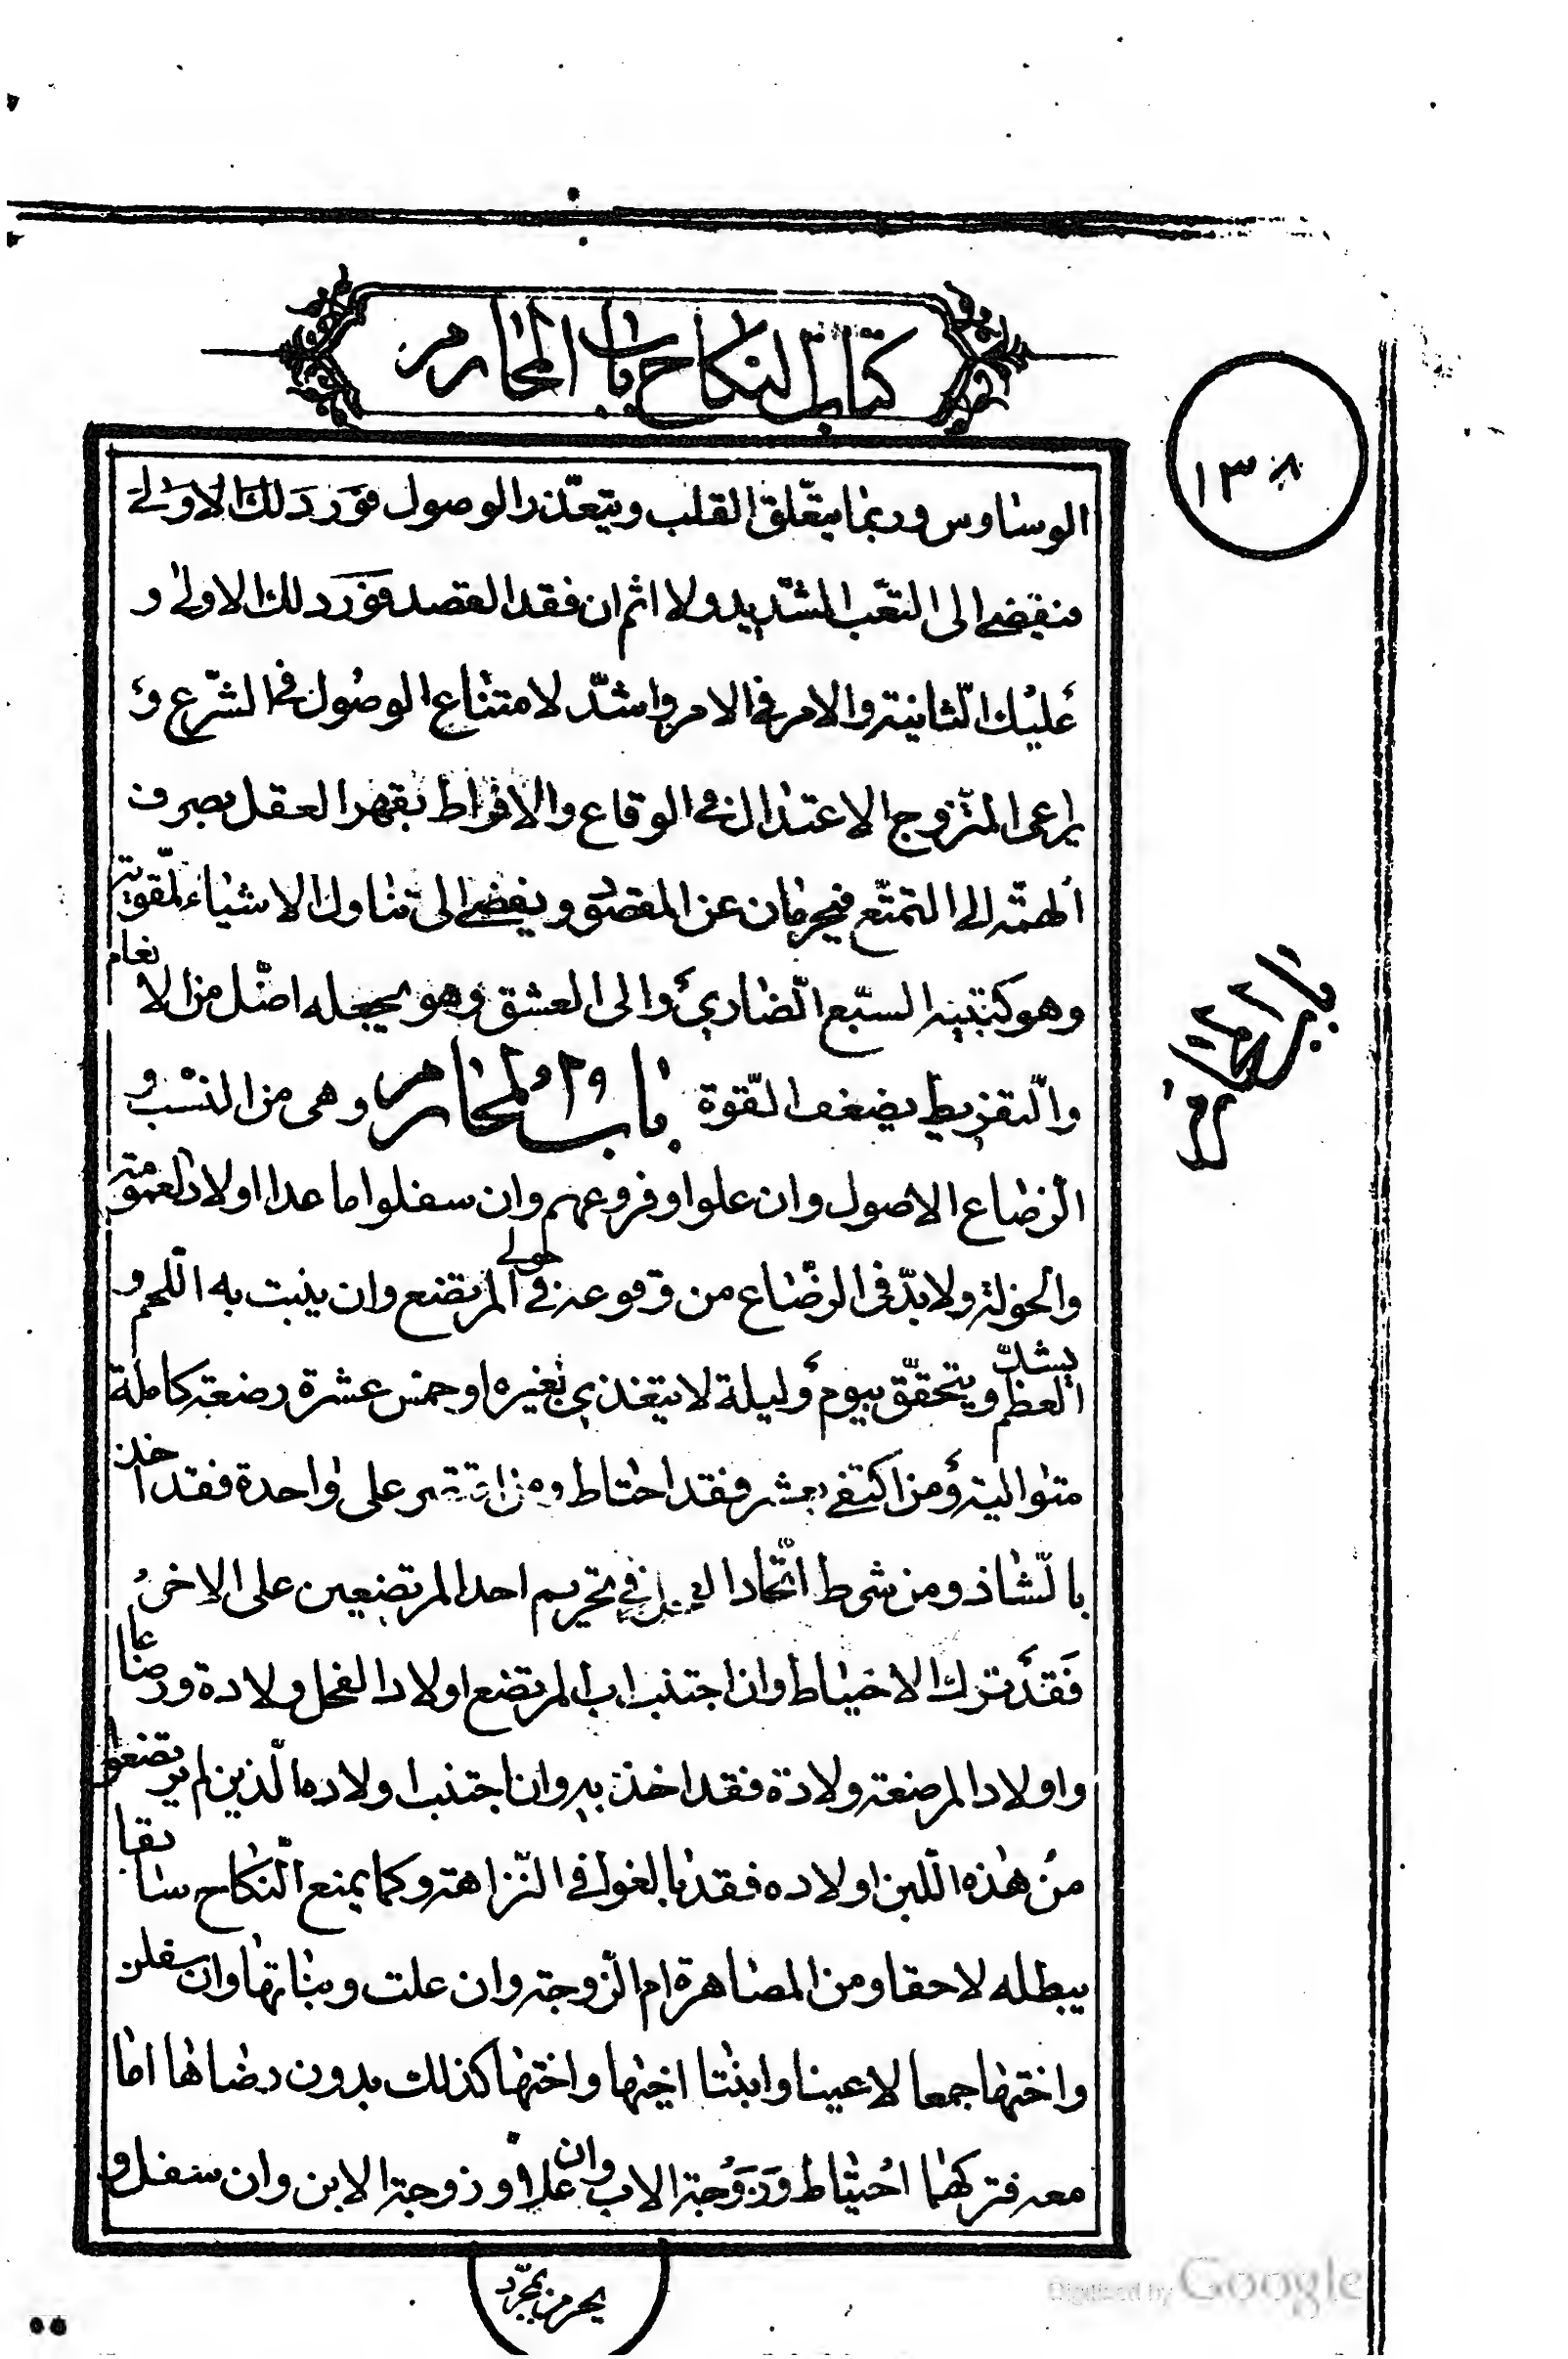 كتاب النكاح باب المحارم
١٣٨
الوساوس وربما يتعلق القلب ويتعذر الوصول فورد لك الاولى
فيفضى الى التعب الشديد ولا اثم ان فقد القصد فورد لك الاولى و
عليك الثانية والامر فى الامرد اشد لامتناع الوصول فى الشرع و
يراعى المتزوج الاعتدال فى الوقاع والافراط بقهر العقل بصرف
الهمة الى التمتع فيحرمان عن المقصود ويفضى الى تناول الاشياء المقوية
وهو كتنبيه السبع الضارى والى العشق وهو يجعله اضل من الانعام
والتفريط يضعف القوة باب المحارم وهى من النسب و
الرضاع الاصول وان علوا وفروعهم وان سفلوا ما عدا اولاد العمومة
والخؤلة ولا بد فى الرضاع من وقوعه فى حولى المرتضع وان ينبت به اللحم و
يشد العظم ويتحقق بيوم وليلة لا يتغذى بغيره او خمس عشرة رضعة كاملة
متوالية ومن اكتفى بعشر فقد احتاط ومن اقتصر على واحدة فقد اخذ
بالشاذ ومن شرط اتحاد الفحل فى تحريم احد المرتضعين على الاخر
فقد ترك الاحتياط وان اجتنب اب المرتضع اولاد الفحل ولادة ورضاعا
واولاد المرضعة ولادة فقد اخذ به وان اجتنب اولاده الذين لم يرتضعوا
من هذه اللبن اولاده فقد بالغ فى النزاهة وكما يمنع النكاح سابقا
يبطله لاحقا ومن المصاهرة ام الزوجة وان علت وبناتها وان سفلن
واختها جمعا لا عينا وابنتا اخيها واختها كذلك بدون رضاها اما
معه فتركهما احتياط وزوجة الاب وان علا وزوجة الابن وان سفل و
يحر من بمجرد
باب المحارم
Digitized by Google